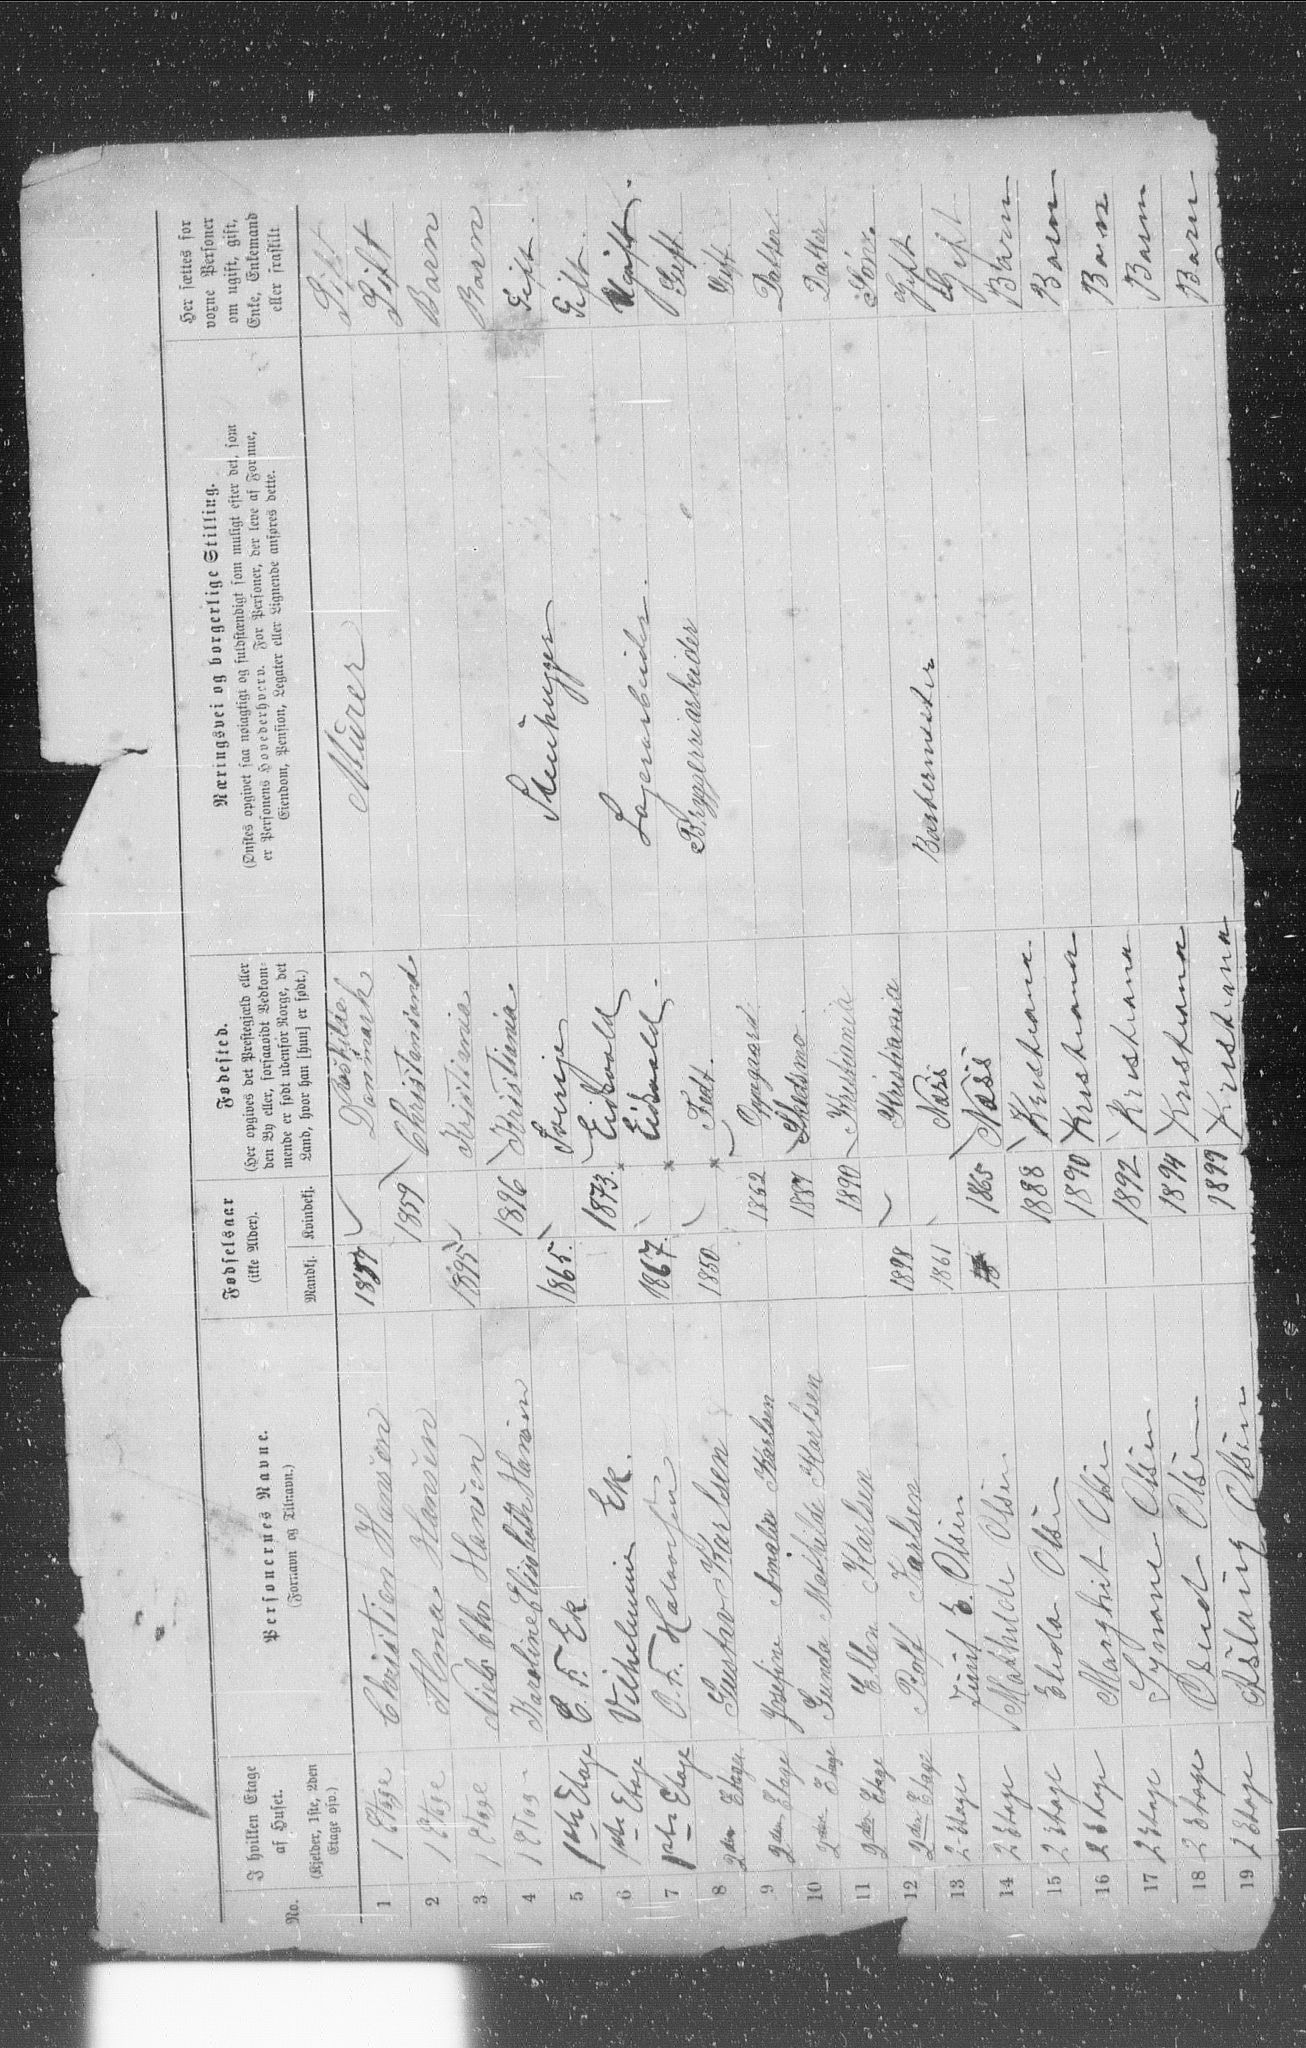 No.
I hvilken Etage
af Huset.
(Kjelder, 1ste, 2den
Etage osv.)
Personernes Navne.
(Fornavn og Tilnavn.)
Fødselsaar
(ikke Alder).
Mandkj. Kvindekj.
Fødested.
(Her opgives det Prestegjæld eller
den By eller, forsaavidt Vedkom-
mende er født udenfor Norge, det
Land, hvor han [hun] er født.)
Næringsvei og borgerlige Stilling.
(Ønskes opgivet saa nøiagtigt og fuldstændigt som muligt efter det, som
er Personens Hovederhverv. For Personer, der leve af Formue,
Eiendom, Pension, Legater eller Lignende anføres dette.
Her sættes for
voxne Personer
om ugift, gift,
Enke, Enkemand
eller fraskilt
1 1 Etage Christien Hansen 1857 Roskilde Danmark Murer Gift
2 1 Etage Alma Hansen 1859 Christiansand Gift
3 1 Etage Niels Chr Hansen 1895 Kristiania Barn
4 1 Etag Karoline Elisabeth Hansen 1896 Kristiania. Barn
5 1ste Etage C. F. Ek 1865. Sverige Stenhugger Gift.
6 1ste Etage Vilhelmine Ek. 1873. Eidsvold Gift.
7 1ste Etage O. F. 1867. Eidsvold. Lagerarbeider. Ugift.
8 2den Etage Gustav Karlsen 1850 Fedt. Bryggeriarbeider Gift
9 2den Etage Josefine Amalie Karlsen 1852 Gift
10 2den Etage Gunda Mathilde Karlsen 1887 Skedsmo. Datter
11 2den Etage Ellen Karlsen 1890 Kristiania Datter
12 2den Etage Rolf Karlsen 1898 Kristiania Sön.
13 2 Etage E. Olsen 1861 Næss Barbermester Gift
14 2 Etage Mathilde Olsen 1865 Næss Gift
15 2 Etage Olsen 1888 Kristiana Barn
16 2 Etage Marghit Olsen 1890 Kristiana Barn
17 2 Etage Synøve Olsen 1892 Kristiana Barn
18 2 Etage Olsen 1894 Kristiana Barn
19 2 Etage Aslaug Olsen 1899 Kristiana Barn